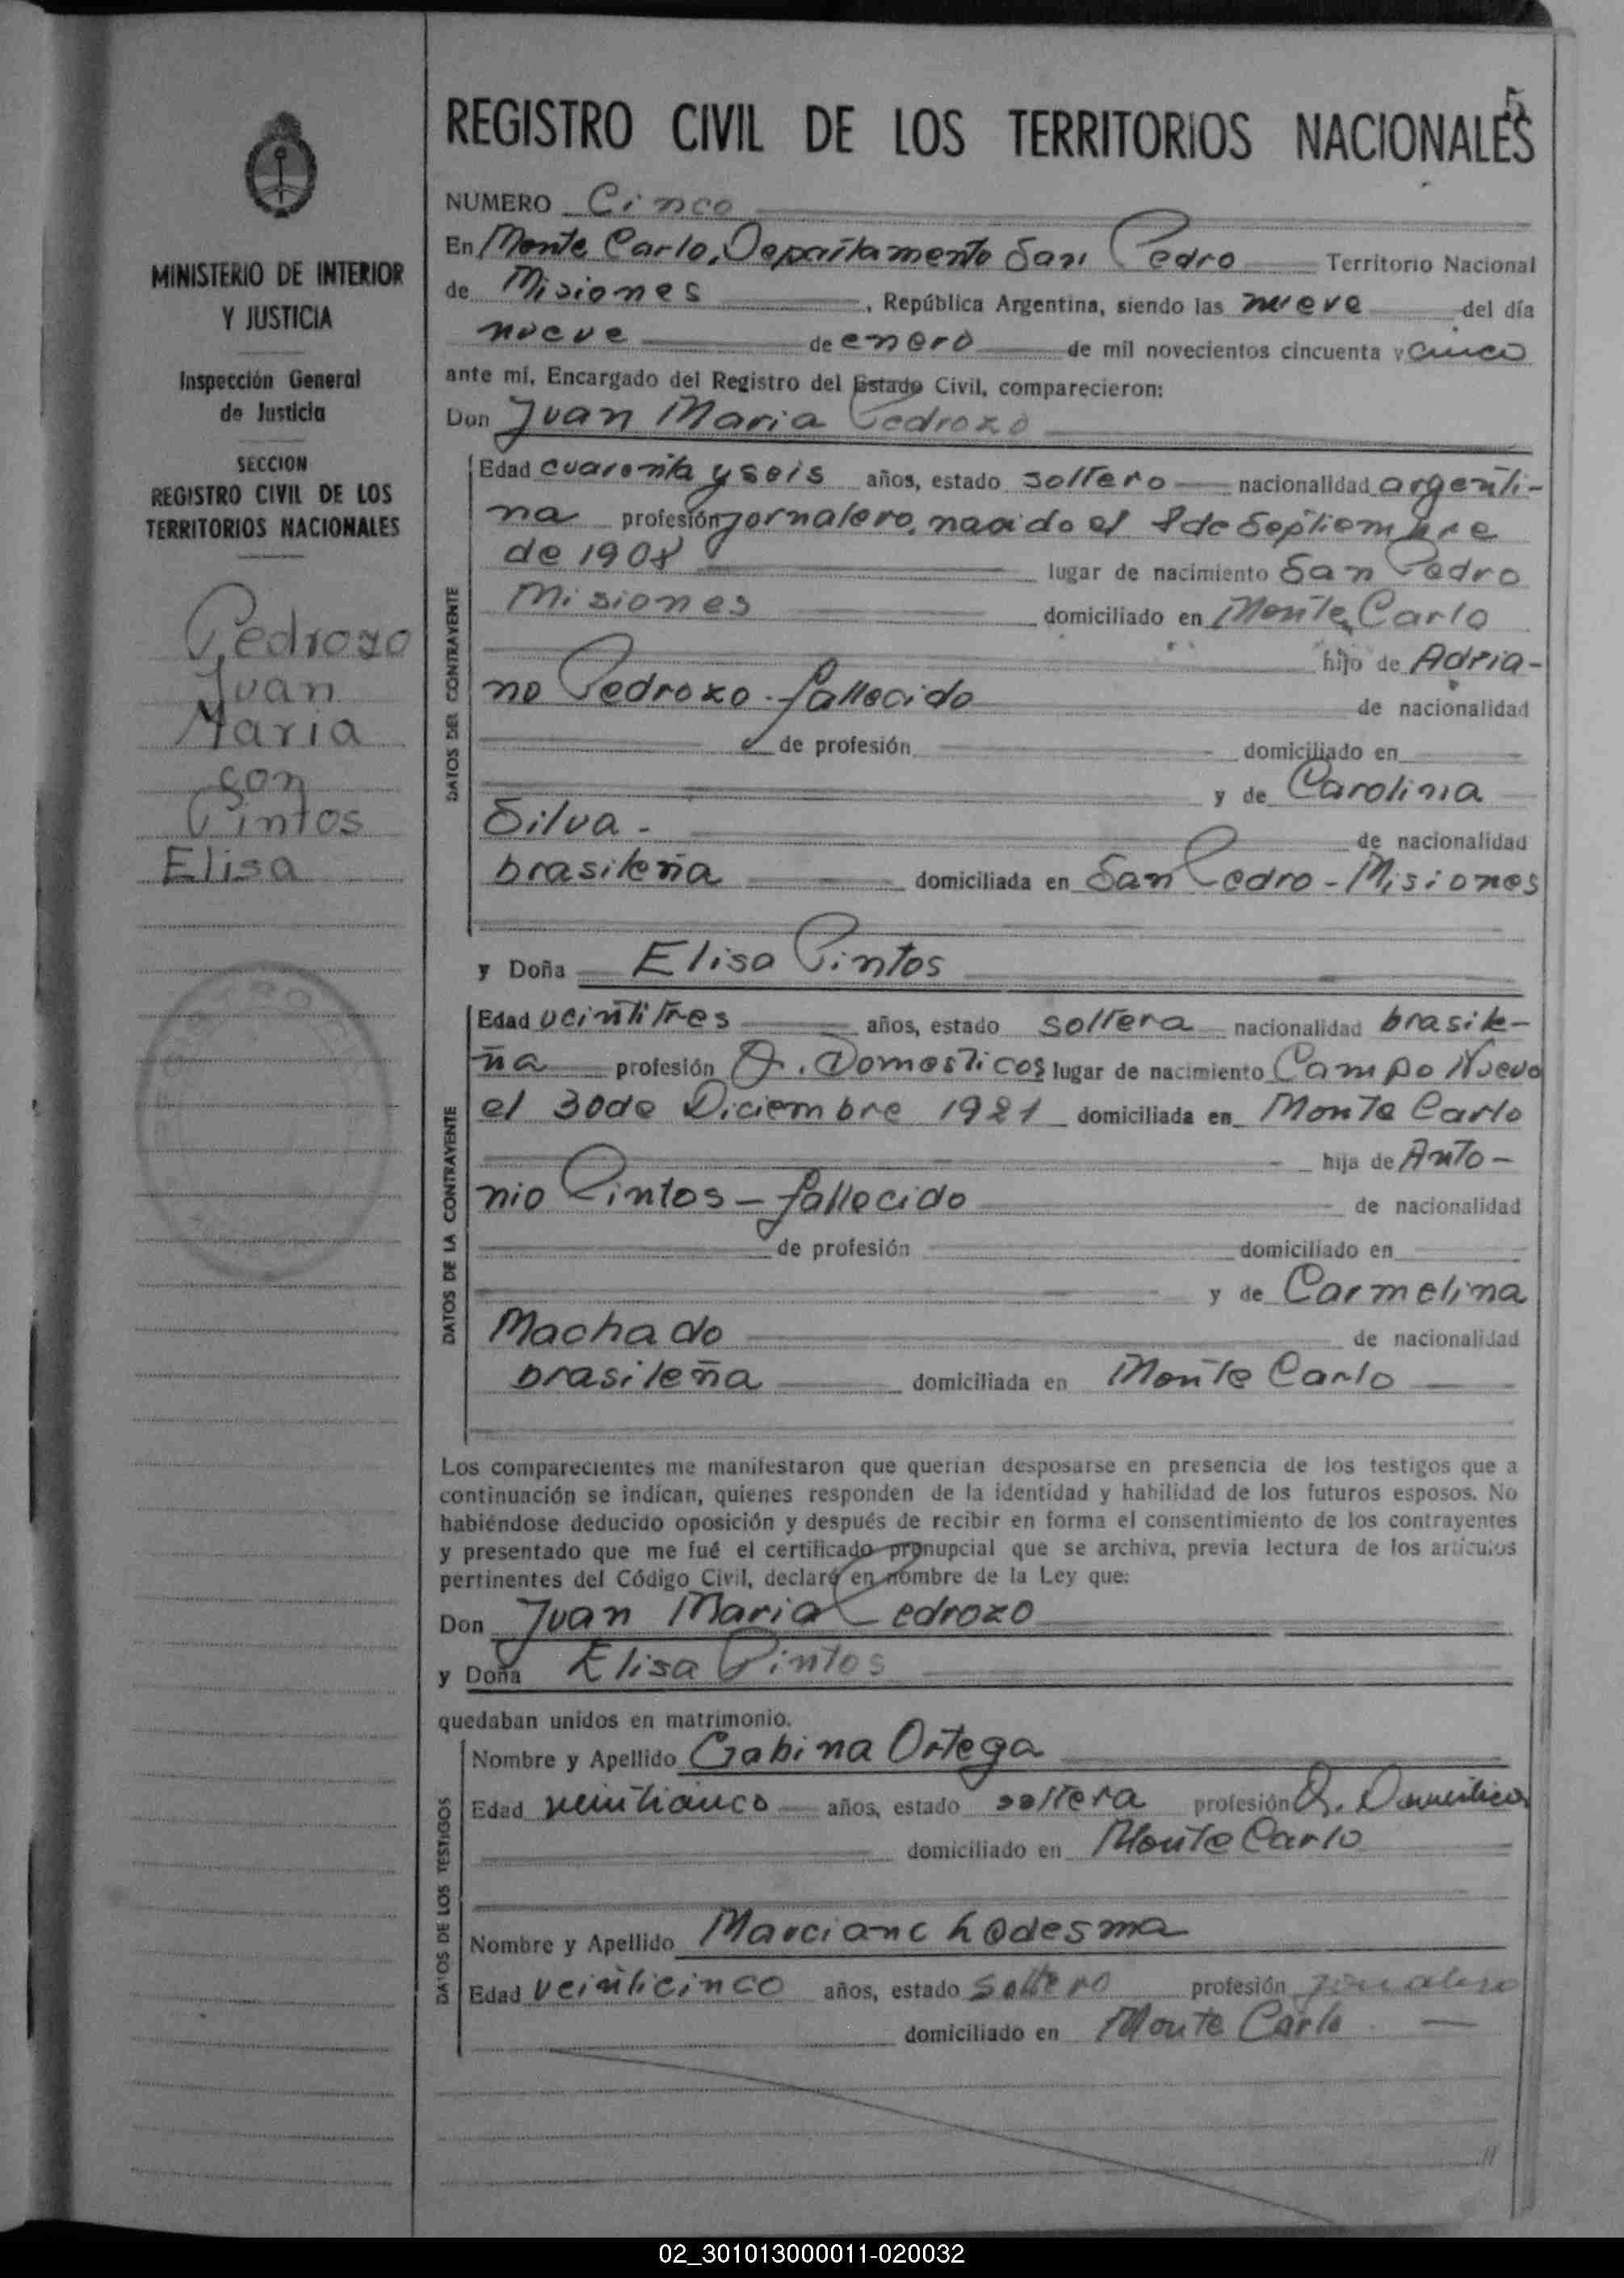 5
REGISTRO CIVIL DE LOS TERRITORIOS NACIONALES
MINISTERIO DE INTERIOR
Y JUSTICIA
Inspección General
de Justicia
SECCION
REGISTRO CIVIL DE LOS
TERRITORIOS NACIONALES
Pedrozo
Juan
Maria
con
Pintos
Elisa
NUMERO Cinco
En Monte Carlo, Departamento San Pedro Territorio Nacional
de Misiones, República Argentina, siendo las nueve del día
nueve de enero de mil novecientos cincuenta y cinco
ante mí, Encargado del Registro del Estado Civil, comparecieron:
Don Juan Maria Pedrozo
DATOS DEL CONTRAYENTE
Edad cuarenta y seis años, estado soltero nacionalidad argenti-
na profesión jornalero, nacido el 8 de Septiembre
de 1908 lugar de nacimiento San Pedro
Misiones domiciliado en Monte Carlo
hijo de Adria-
no Pedrozo - fallecido de nacionalidad
de profesión domiciliado en
y de Carolina
Silva - de nacionalidad
brasileña domiciliada en San Pedro - Misiones
y Doña Elisa Pintos
DATOS DE LA CONTRAYENTE
Edad veintitres años, estado soltera nacionalidad brasile-
ña profesión Q. Domesticos lugar de nacimiento Campo Nuevo
el 30 de Diciembre 1921 domiciliada en Monte Carlo
hija de Anto-
nio Pintos - fallecido de nacionalidad
de profesión domiciliado en
y de Carmelina
Machado de nacionalidad
brasileña domiciliada en Monte Carlo
Los comparecientes me manifestaron que querían desposarse en presencia de los testigos que a
continuación se indican, quienes responden de la identidad y habilidad de los futuros esposos. No
habiéndose deducido oposición y después de recibir en forma el consentimiento de los contrayentes
y presentado que me fué el certificado prenupcial que se archiva, previa lectura de los artículos
pertinentes del Código Civil, declaré en nombre de la Ley que:
Don Juan Maria Pedrozo
y Doña Elisa Pintos
quedaban unidos en matrimonio.
DATOS DE LOS TESTIGOS
Nombre y Apellido Gabina Ortega
Edad veinticinco años, estado soltera profesión Q. Domésticos
domiciliado en Monte Carlo
Nombre y Apellido Marciano Ledesma
Edad veinticinco años, estado soltero profesión jornalero
domiciliado en Monte Carlo
02_301013000011-020032